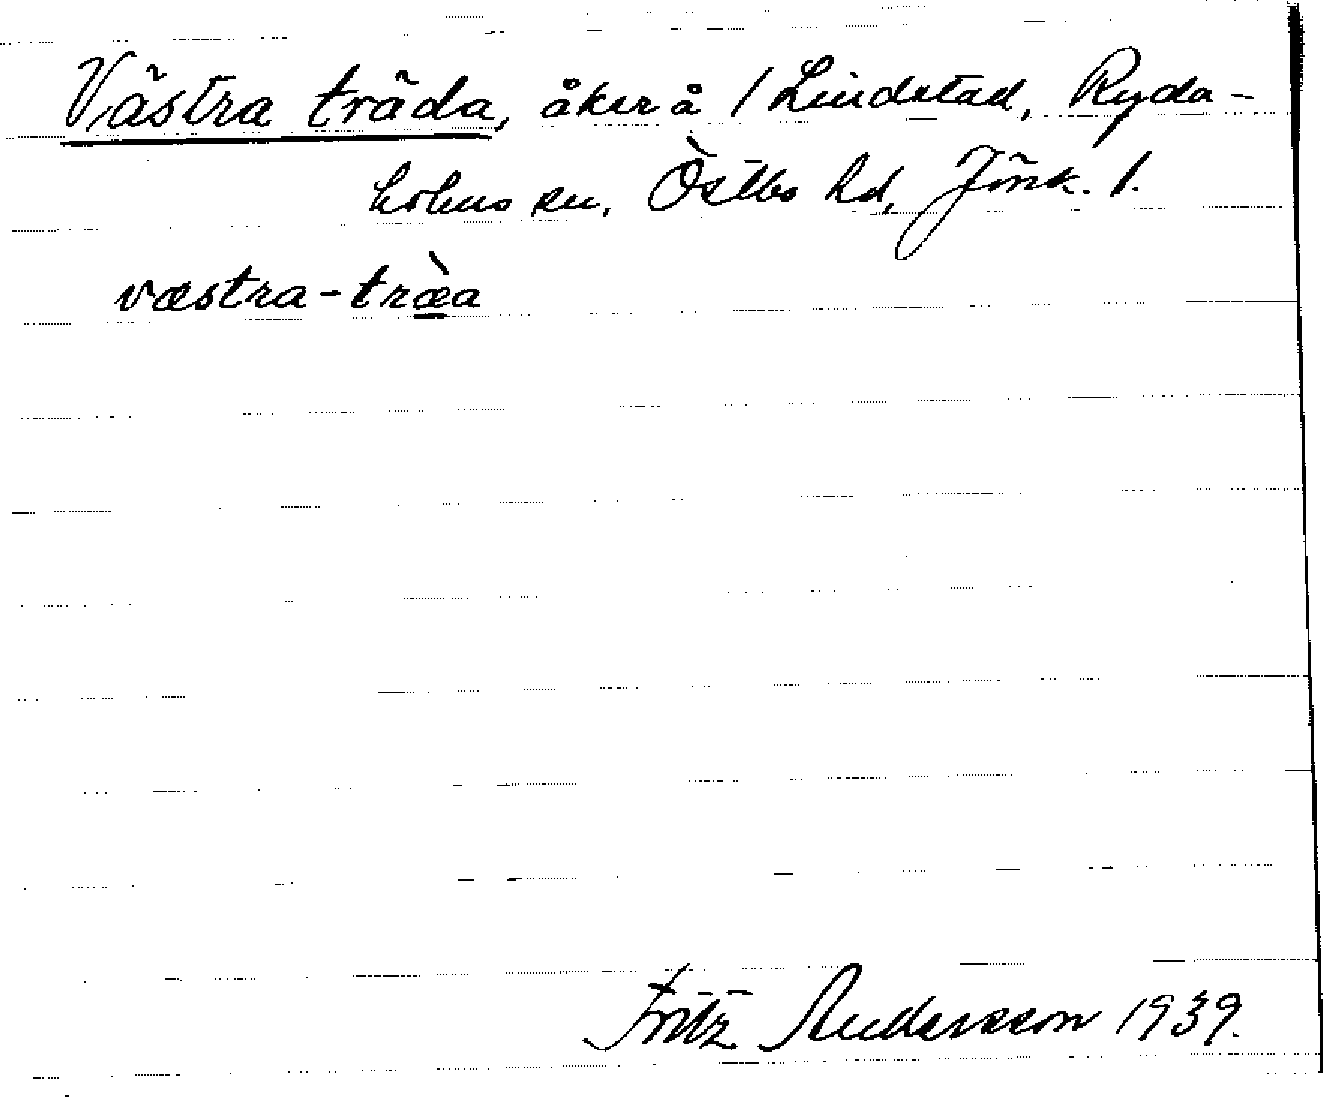 Västra träda, åker å 1 Lindstad, Ryda-
holms sn, Östbo hd, Jönk. l.
væstra-træ̀a
Fritz Andersson 1939.